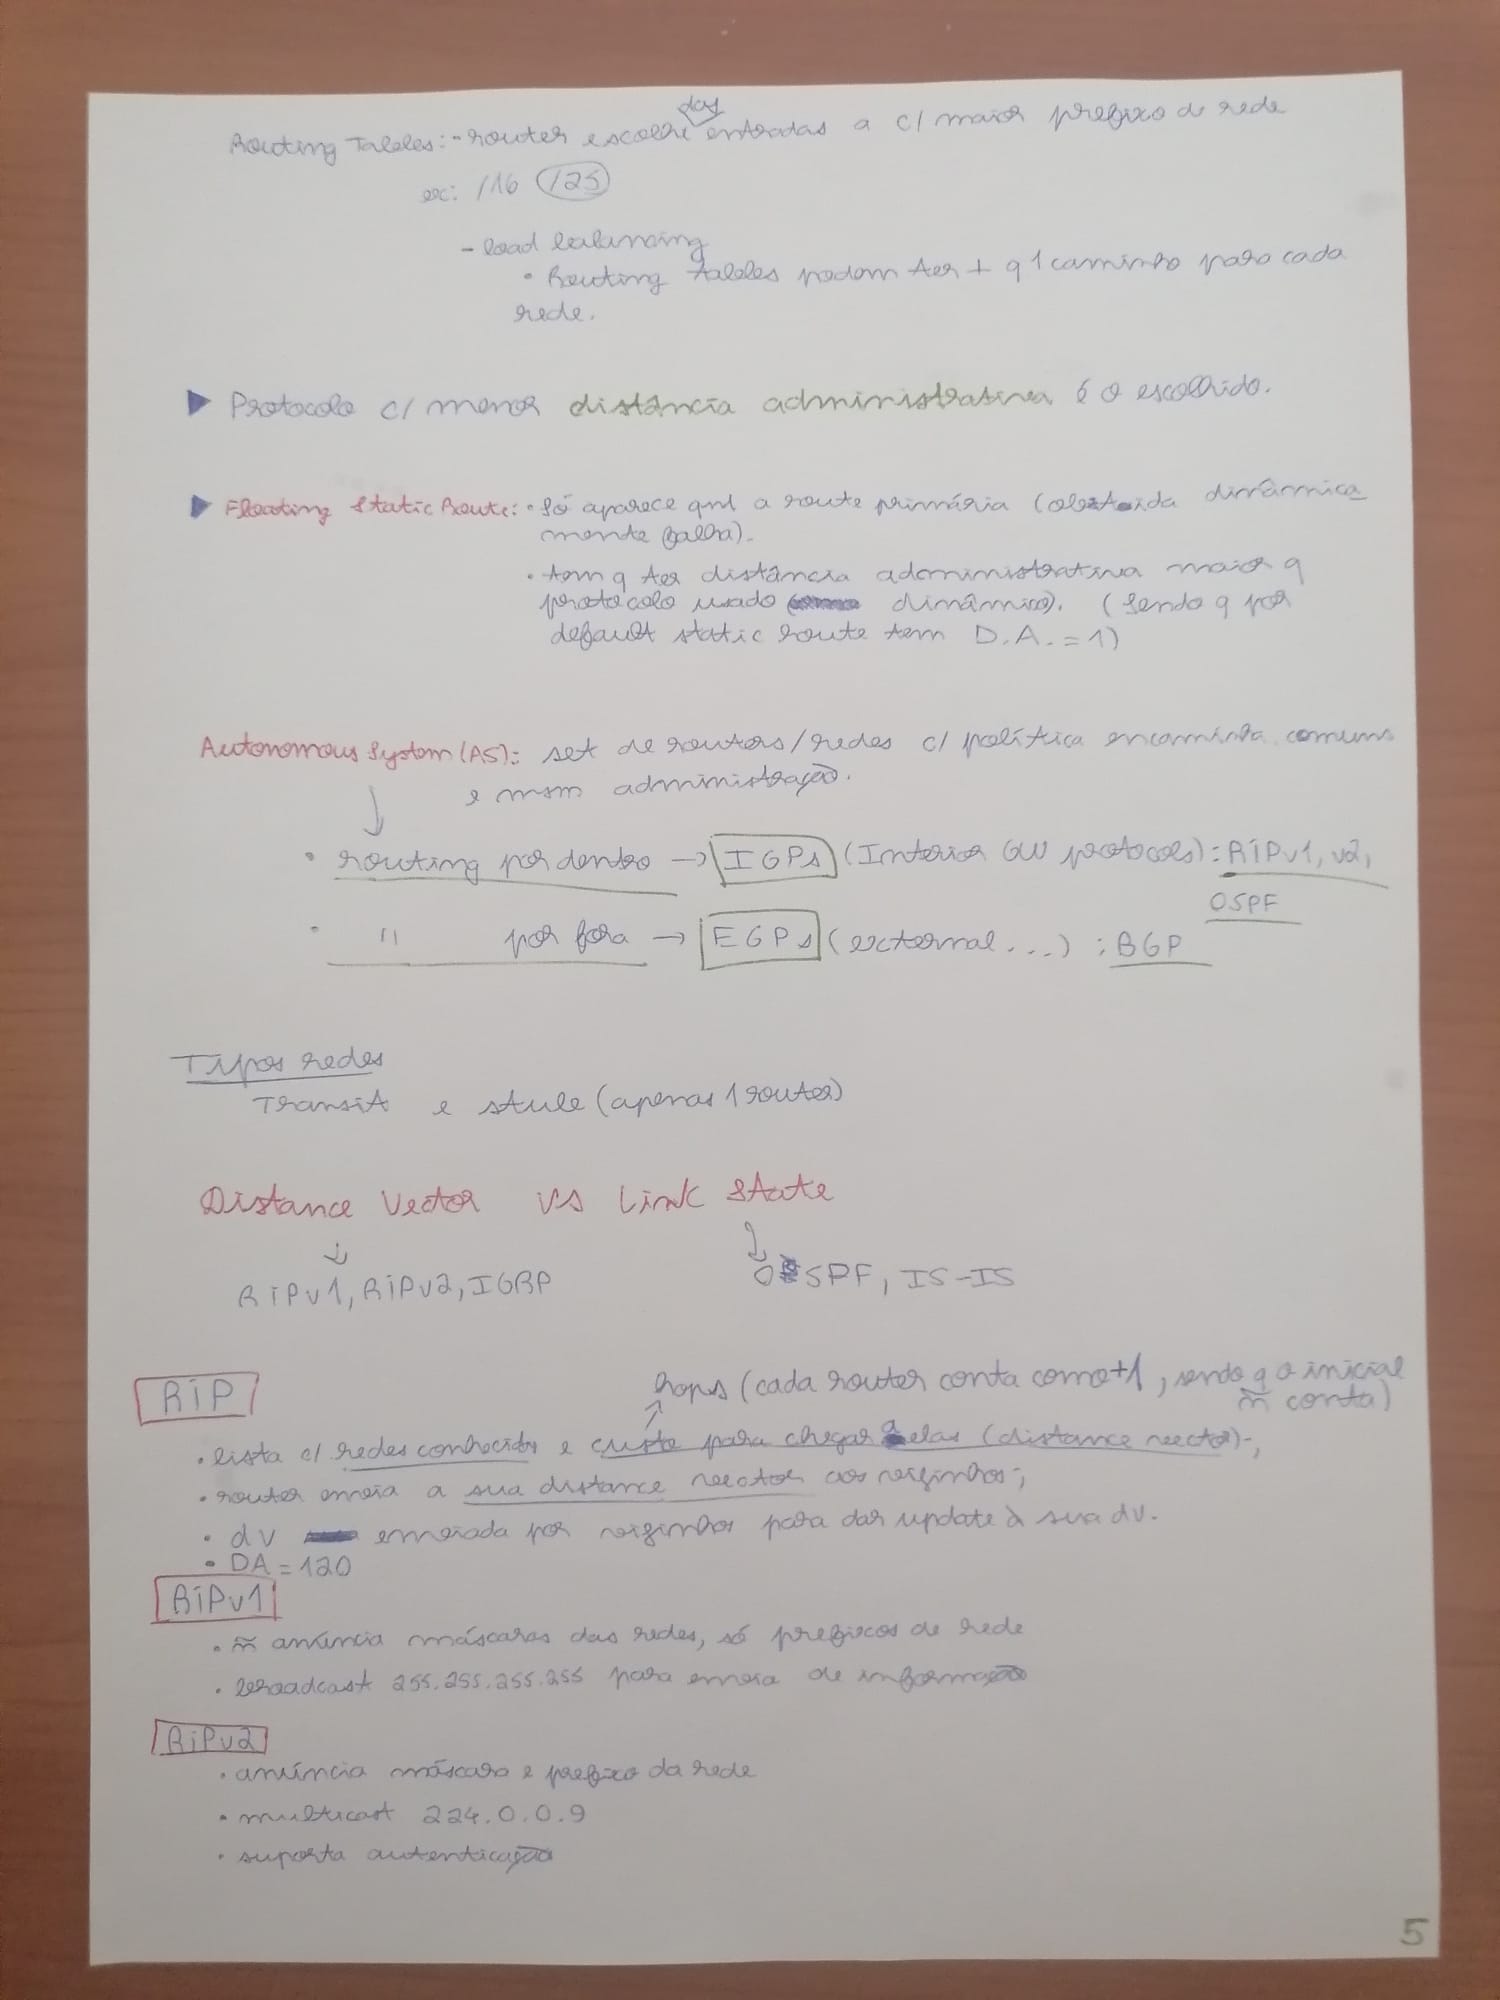 Routing Tables: - router escolhe das entradas a c/ maior prefixo de rede
ex: /16 /25
- load balancing
• Routing tables podem ter + q 1 caminho para cada
rede.
Protocolo c/ menor distância administrativa é o escolhido.
Floating Static Route: • só aparece qnd a route primária (obtida dinâmica
mente falha).
• tem q ter distância administrativa maior q
protocolo usado dinâmico). (sendo q por
default static route tem D.A. = 1)
Autonomous System (AS): set de routers/redes c/ política encaminha. comuns
e msm administração.
• routing por dentro → IGPs (Interior GW protocols): RIPv1, v2,
OSPF
• " por fora → EGPs (external...) : BGP
Tipos redes
Transit e stub (apenas 1 router)
Distance Vector vs Link State
RIPv1, RIPv2, IGRP
OSPF, IS-IS
hops (cada router conta como +1, sendo q o inicial
ñ conta)
RIP
• lista c/ redes conhecidas e custo para chegar a elas (distance vector);
• router envia a sua distance vector aos vizinhos;
• dv enviada por vizinhos para dar update à sua dv.
• DA = 120
RIPv1
• ñ anúncia máscaras das redes, só prefixos de rede
• broadcast 255.255.255.255 para envia de informação
RIPv2
• anúncia máscara e prefixo da rede
• multicast 224.0.0.9
• suporta autenticação
5